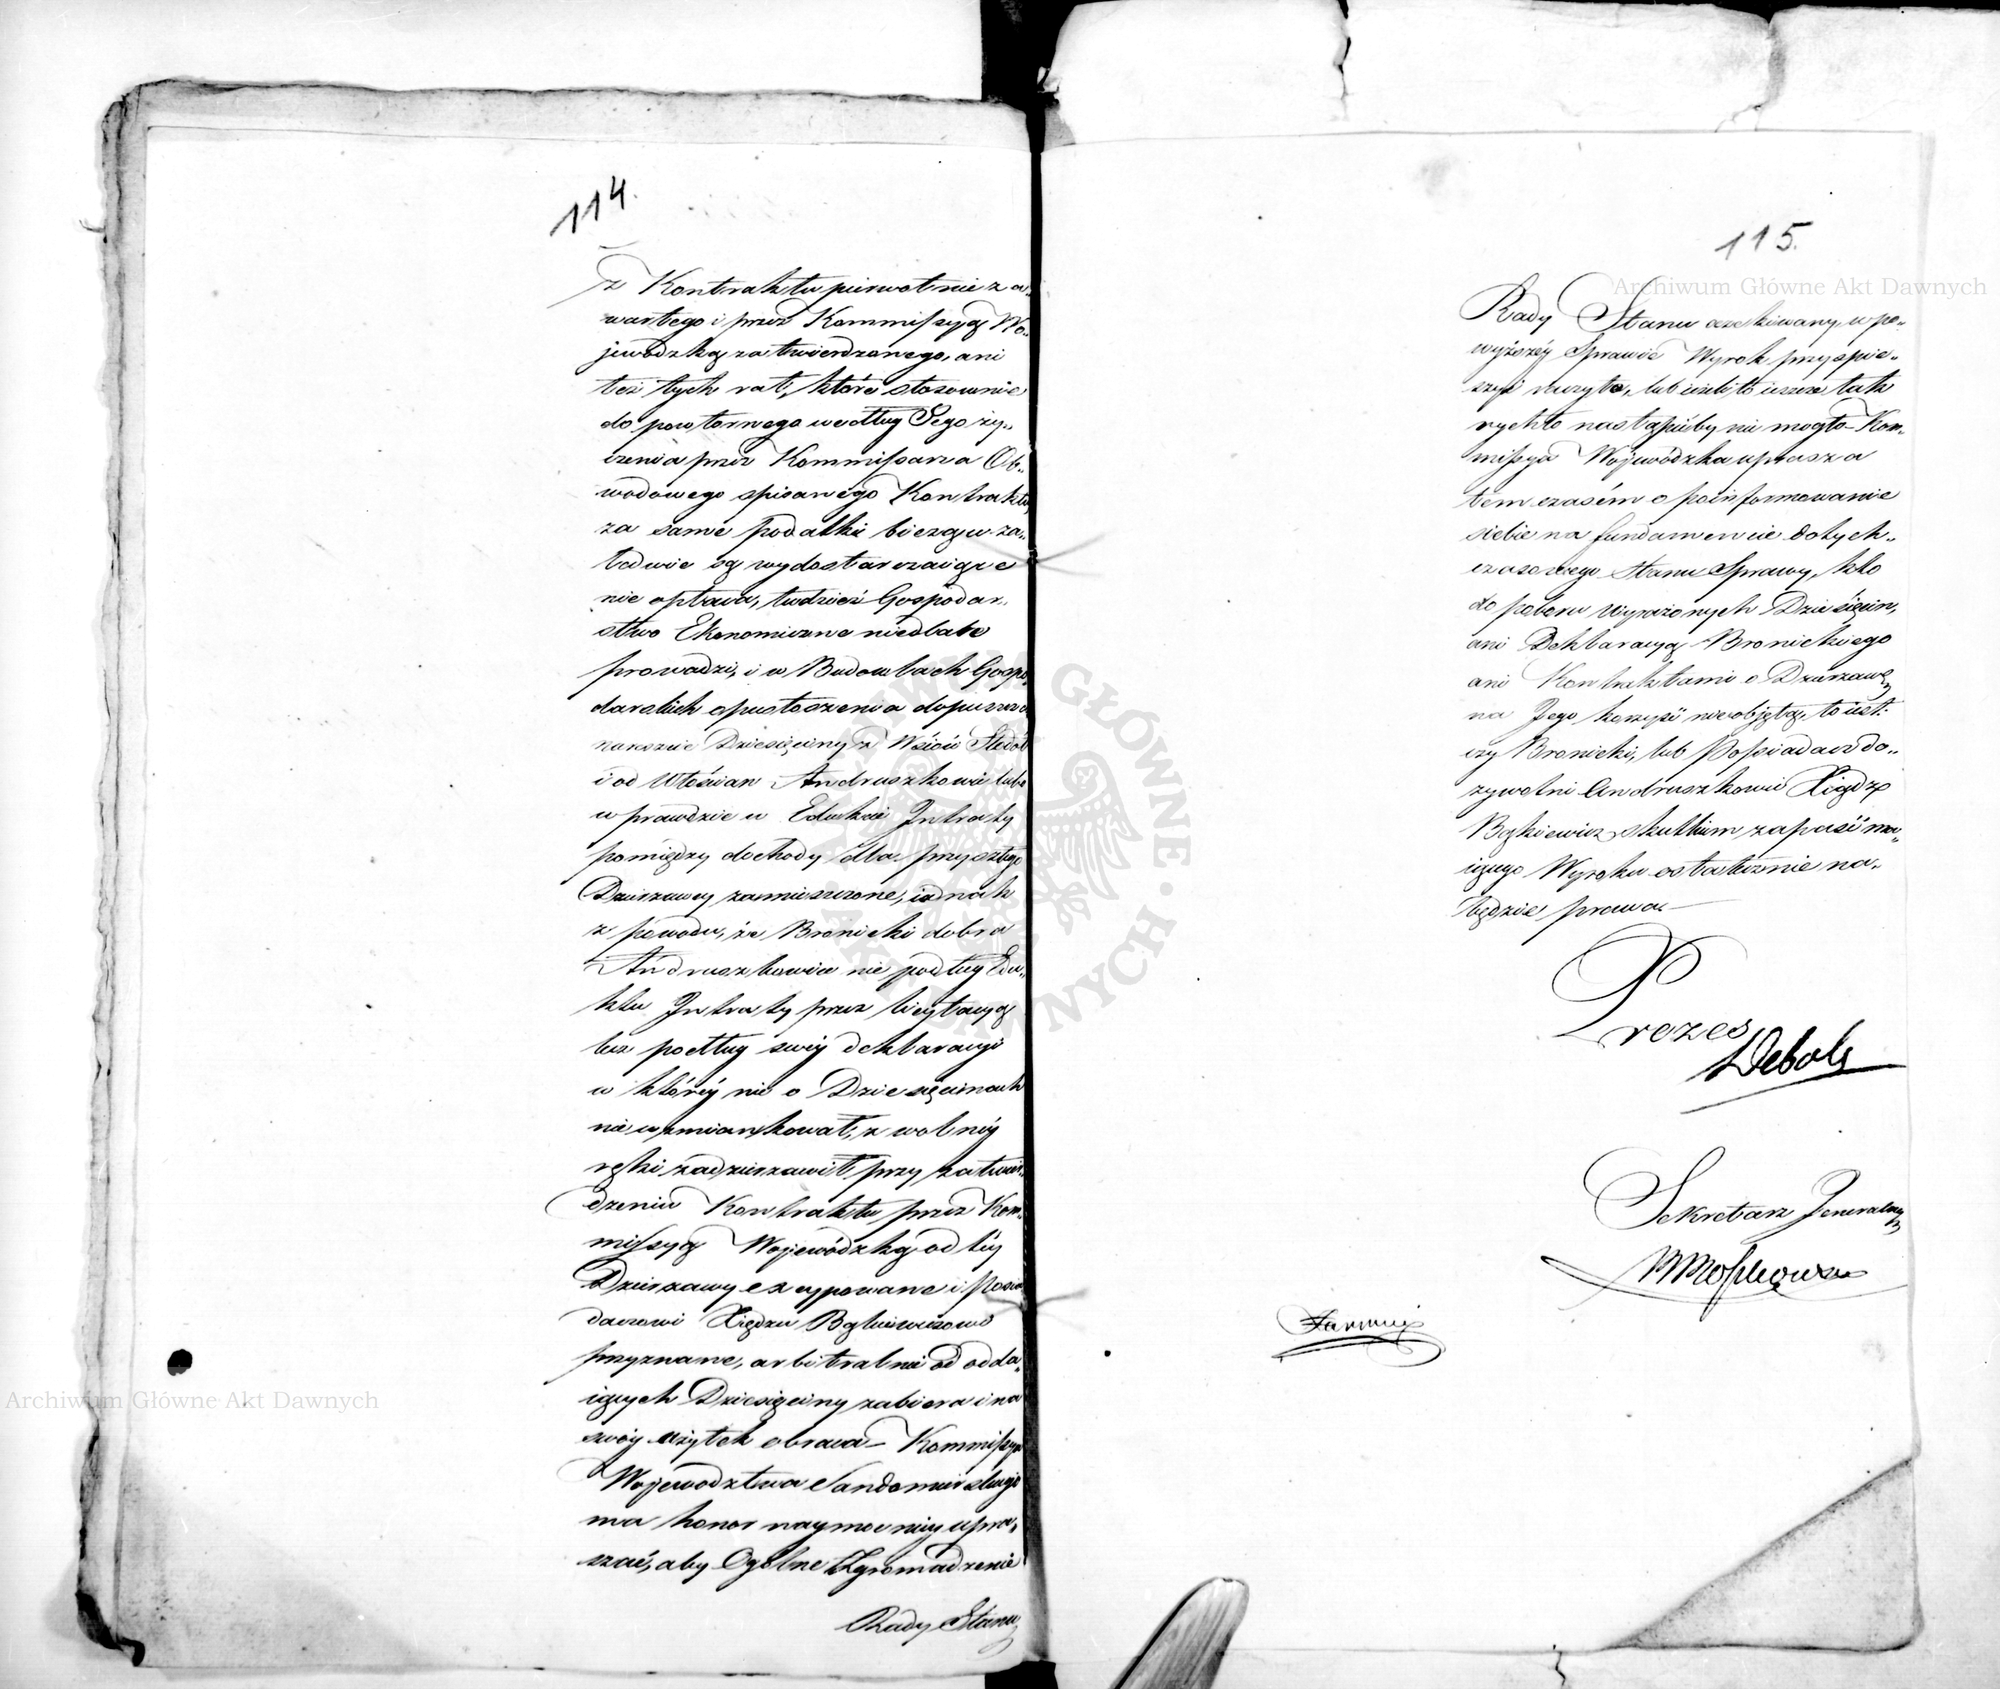 114.
z Kontraktu pierwotnie za-
wartego i przez Kommissyą Wo-
jewódzką zatwierdzonego, ani
też tych rat, które stosownie
do powtornego według Jego ży-
czenia przez Kommissarza Ob-
wodowego spisanego Kontraktu,
za same podatki bieżące za-
ledwie są wydostarczaiące
nie opłaca, tudzież Gospodar-
stwo Ekonomiczne niedbale
prowadzi, i w Budowlach Gospo-
darskich spustoszenia dopuszcza
nareszcie Dziesięciny z Wsiów
i od Włościan Andruszkowic lubo
w prawdzie w Edukcie Intraty
pomiędzy dochody dla przyszłego
Dzierzawcy zamieszczone, iednak
z powodu, że Bronicki dobra
Andruszkowice nie podług Edu-
ktu Intraty przez licytacyą
lecz podług swéy deklaracyi
w któréy nic o Dziesięcinach
nie wzmiankował, z wolnéy
ręki zadzierzawił przy zatwier-
dzeniu Kontraktu przez Kom-
missyą Wojewódzką od téy
Dzierzawy excypowane i Posia-
daczowi Xiędzu Bąkiewiczowi
przyznane, arbitralnie od odda-
iących Dziesięciny zabiera i na
swóy użytek obraca – Kommissya
Województwa Sandomirskiego
ma honor naymocniéy upra-
szać, aby Ogólne Zgromadzenie
Rady Stanu
115.
Rady Stanu oczekiwany w po-
wyższéy Sprawie Wyrok przyspie-
szyć raczyło, lub ieżeli to ieszcze tak
rychło nastąpićby nie mogło – Kom-
missya Wojewódzka uprasza
tem czasém o poinformowanie
siebie na fundamencie dotych-
czasowego Stanu Sprawy, kto
do poboru wyrażonych Dziesięcin,
ani Deklaracyą Bronickiego
ani Kontraktami o Dzierzawę
na Jego korzyść nieobjętą, to iest:
czy Bronicki, lub Possiadacz do-
zywotni Andruszkowic Xiądz
Bąkiewicz, skutkiem zapaść ma-
iącego Wyroku ostatecznie na-
będzie prawa –
Prezes
Deboli
Sekretarz Jeneralny
Archiwum Główne Akt Dawnych
Archiwum Główne Akt Dawnych